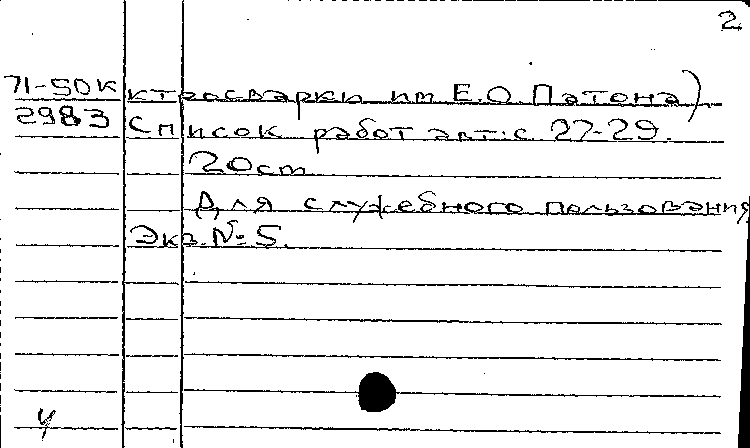 2
71-5ОК ктросварки им Е.О. Патона)
2983 Список работ авт: с 27-29.
20 ст
Для служебного пользования
Экз. № 5.
У